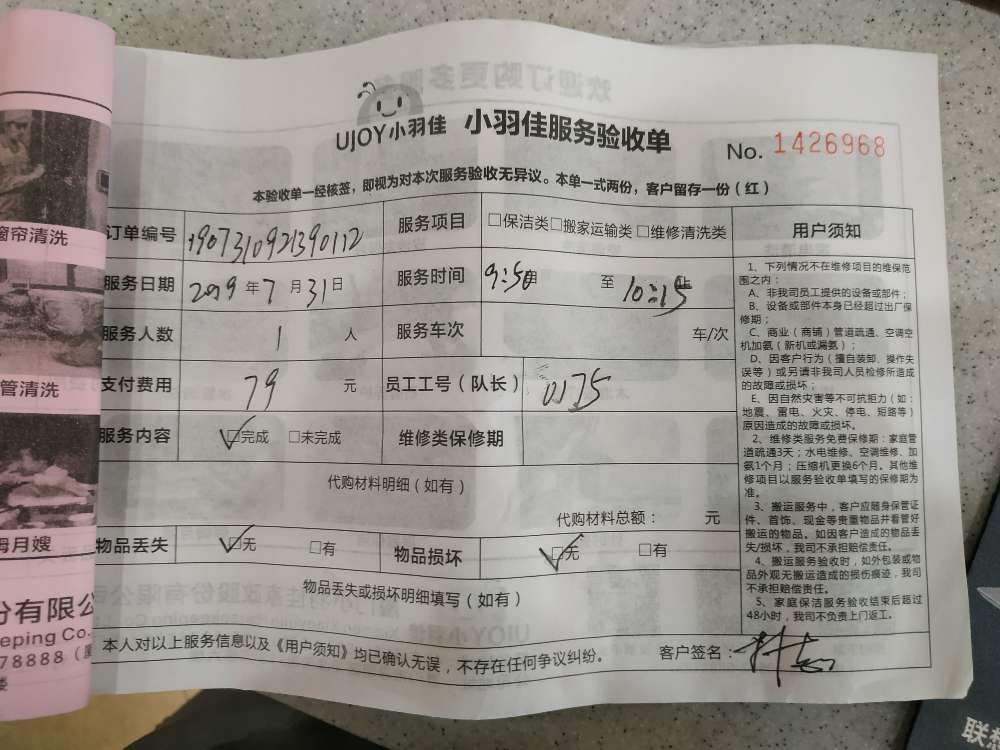 UJOY小羽佳 小羽佳服务验收单
No. 1426968
本验收单一经核签，即视为对本次服务验收无异议。本单一式两份，客户留存一份（红）
订单编号 1907310921390112 服务项目 □保洁类□搬家运输类 □维修清洗类
服务日期 2019年7月31日 服务时间 9:50 至 10:15
服务人数 1 人 服务车次 车/次
支付费用 79 元 员工工号（队长） 0175
服务内容 ☑完成 □未完成 维修类保修期
代购材料明细（如有）
代购材料总额： 元
物品丢失 ☑无 □有 物品损坏 ☑无 □有
物品丢失或损坏明细填写（如有）
本人对以上服务信息以及《用户须知》均已确认无误，不存在任何争议纠纷。 客户签名：
用户须知
1、下列情况不在维修项目的维保范
围之内：
A、非我司员工提供的设备或部件；
B、设备或部件本身已经超过出厂保
修期；
C、商业（商铺）管道疏通、空调空
机加氨（新机或漏氨）；
D、因客户行为（擅自装卸、操作失
误等）或另请非我司人员检修所造成
的故障或损坏；
E、因自然灾害等不可抗拒力（如：
地震、雷电、火灾、停电、短路等）
原因造成的故障或损坏。
2、维修类服务免费保修期：家庭管
道疏通3天；水电维修、空调维修、加
氨1个月；压缩机更换6个月。其他维
修项目以服务验收单填写的保修期为
准。
3、搬运服务中，客户应随身保管证
件、首饰、现金等贵重物品并看管好
搬运的物品。如因客户造成的物品丢
失/损坏，我司不承担赔偿责任。
4、搬运服务验收时，如外包装或物
品外观无搬运造成的损伤痕迹，我司
不承担赔偿责任。
5、家庭保洁服务验收结束后超过
48小时，我司不负责上门返工。
窗帘清洗
管清洗
月嫂
份有限公
eeping Co.
78888
联